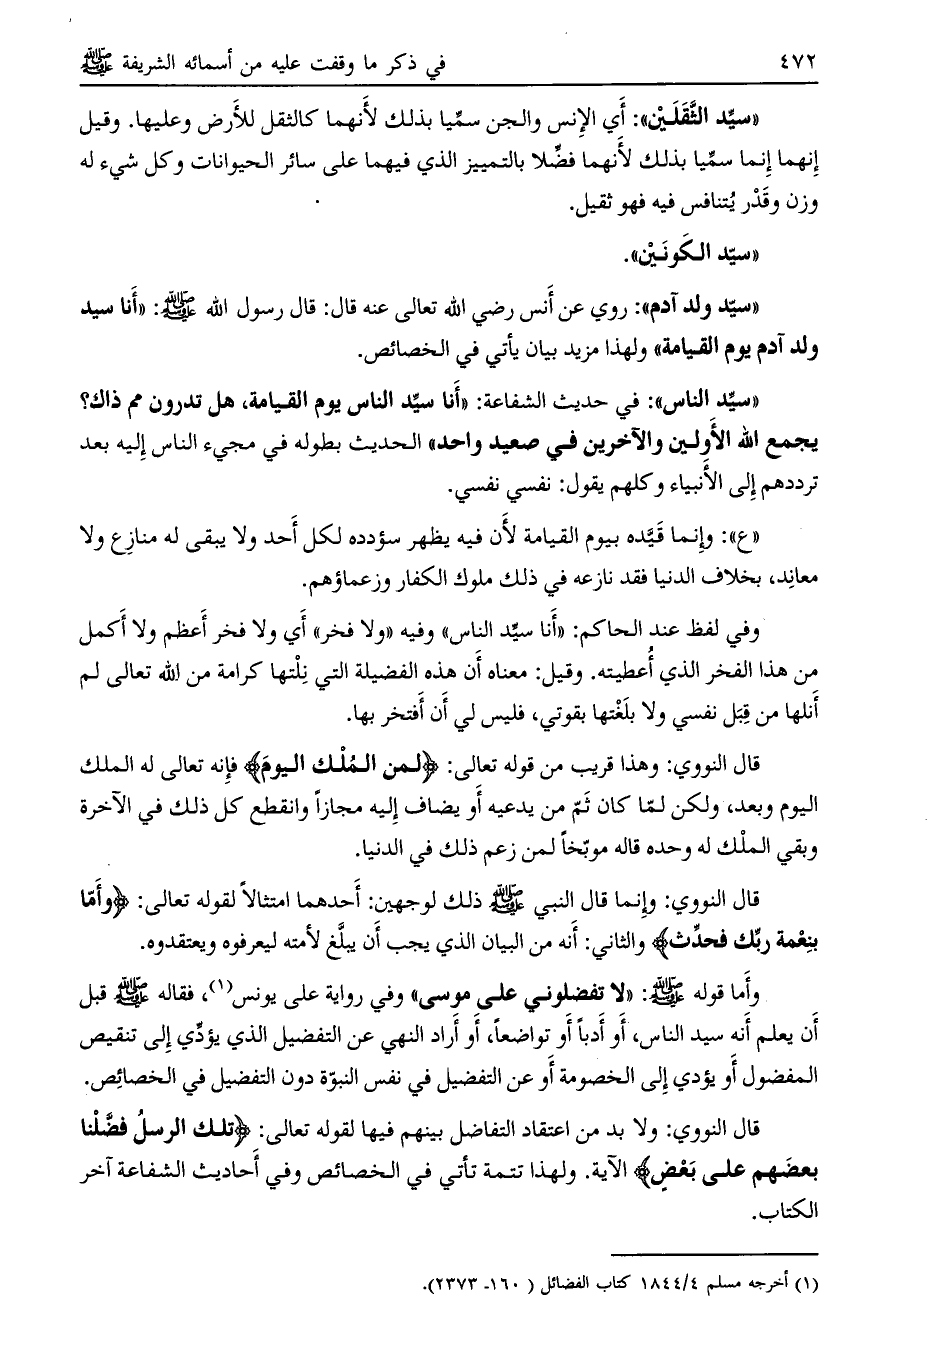 ٤٧٢ في ذكر ما وقفت عليه من أسمائه الشريفة ﷺ
«سيِّد الثَّقَلَيْن»: أَي الإِنس والجن سمِّيا بذلك لأَنهما كالثقل للأَرض وعليها. وقيل
إِنهما إِنما سمِّيا بذلك لأَنهما فضِّلا بالتمييز الذي فيهما على سائر الحيوانات وكل شيء له
وزن وقَدْر يُتنافس فيه فهو ثقيل.
«سيّد الكَونَيْن».
«سيّد ولد آدم»: روي عن أَنس رضي الله تعالى عنه قال: قال رسول الله ﷺ: «أَنا سيد
ولد آدم يوم القيامة» ولهذا مزيد بيان يأتي في الخصائص.
«سيِّد الناس»: في حديث الشفاعة: «أَنا سيِّد الناس يوم القيامة، هل تدرون مم ذاك؟
يجمع الله الأَولين والآخرين في صعيد واحد» الحديث بطوله في مجيء الناس إِليه بعد
ترددهم إِلى الأَنبياء وكلهم يقول: نفسي نفسي.
«ع»: وإِنما قَيَّده بيوم القيامة لأَن فيه يظهر سؤدده لكل أَحد ولا يبقى له منازِع ولا
معانِد، بخلاف الدنيا فقد نازعه في ذلك ملوك الكفار وزعماؤهم.
وفي لفظ عند الحاكم: «أَنا سيِّد الناس» وفيه «ولا فخر» أَي ولا فخر أَعظم ولا أَكمل
من هذا الفخر الذي أُعطيته. وقيل: معناه أَن هذه الفضيلة التي نِلْتها كرامة من الله تعالى لم
أَنلها من قِبَل نفسي ولا بلَغْتها بقوتي، فليس لي أَن أَفتخر بها.
قال النووي: وهذا قريب من قوله تعالى: ﴿لمن المُلْك اليومَ﴾ فإِنه تعالى له الملك
اليوم وبعد، ولكن لمّا كان ثَمّ من يدعيه أَو يضاف إِليه مجازاً وانقطع كل ذلك في الآخرة
وبقي الملْك له وحده قاله موبّخاً لمن زعم ذلك في الدنيا.
قال النووي: وإِنما قال النبي ﷺ ذلك لوجهين: أَحدهما امتثالاً لقوله تعالى: ﴿وأَمّا
بنِعْمة ربِّك فحدِّث﴾ والثاني: أَنه من البيان الذي يجب أَن يبلَّغ لأمته ليعرفوه ويعتقدوه.
وأَما قوله ﷺ: «لا تفضلوني على موسى» وفي رواية على يونس(١)، فقاله ﷺ قبل
أَن يعلم أَنه سيد الناس، أَو أَدباً أَو تواضعاً، أَو أَراد النهي عن التفضيل الذي يؤدِّي إِلى تنقيص
المفضول أَو يؤدي إِلى الخصومة أَو عن التفضيل في نفس النبوّة دون التفضيل في الخصائِص.
قال النووي: ولا بد من اعتقاد التفاضل بينهم فيها لقوله تعالى: ﴿تلك الرسلُ فضَّلْنا
بعضَهم على بَعْضٍ﴾ الآية. ولهذا تتمة تأتي في الخصائص وفي أَحاديث الشفاعة آخر
الكتاب.
(١) أخرجه مسلم ١٨٤٤/٤ كتاب الفضائل ( ١٦٠- ٢٣٧٣).